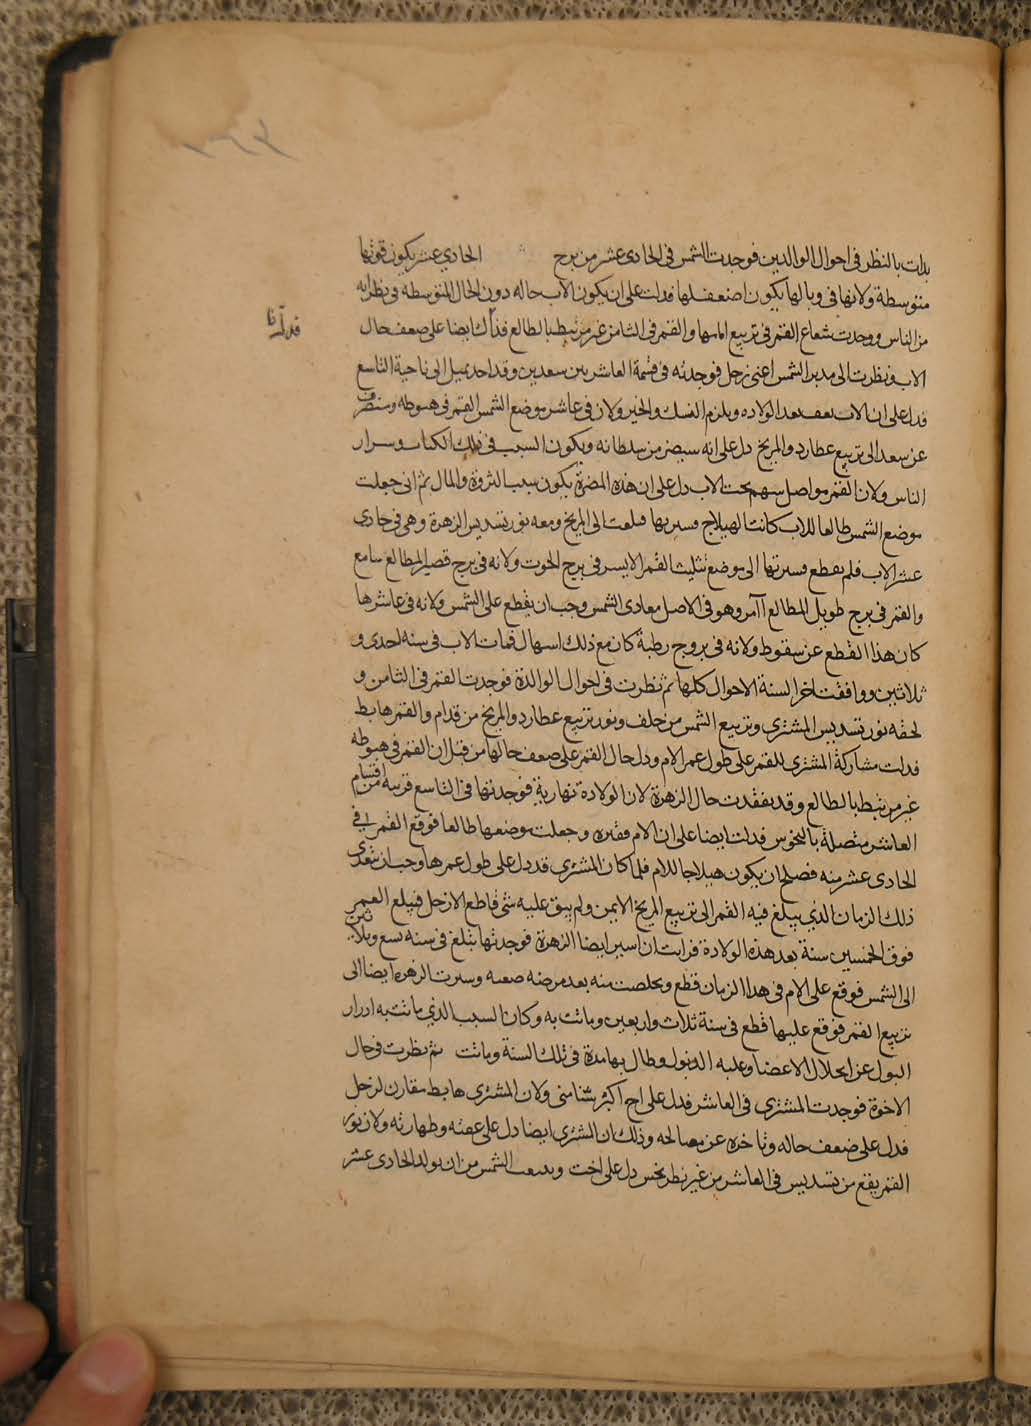 بدات بالنظر في احوال الوالدين فوجدت الشمس في الحادي عشر من برج الحادي عشر يكون قوتها
متوسطة ولانها في وبالها يكون اضعف لها فدلت على ان يكون الاب حاله دون الحال المتوسطة في نظرايه
من الناس ووجدت شعاع القمر في تربيع اماسها والقمر في الثامن غير مرتبط بالطالع فذلك ايضا على ضعف حال
الاب ونظرت الى مدبر الشمس اعني زحل فوجدته في قسمة العاشر بين سعدين وقد اخذ يميل الى ناحية التاسع
فدل على ان الاب بعد الولاده ويلزم النسك والخير ولان في عاشر موضع الشمس القمر في هبوطه ومنصرف
عن سعد الى تربيع عطارد والمريخ دل على انه سيضر من سلطانه ويكون السبب في ذلك الكتاب وسرار
الناس ولان القمر مواصل سهم بخت الاب دل على ان هذه المضرة يكون بسبب الثروة والمال ثم اني جعلت
موضع الشمس طالعا للاب كانت الهيلاج فسيرتها فبلغت الى المريخ ومعه نور تسديس الزهرة وهو في حادي
عشر الاب فلم يقطع فسيرتها الى موضع تثليث القمر الايسر في برج الحوت ولانه في برج قصير المطالع سامع
والقمر في برج طويل المطالع آمر وهو في الاصل معادي الشمس وجب ان يقطع على الشمس ولانه في عاشرها
كان هذا القطع عن سقوط ولانه في بروج رطبة كان مع ذلك اسهال فمات الاب في سنه احدى و
ثلاثين ووافقت اخر السنة الاحوال كلها ثم نظرت في احوال الوالدة فوجدت القمر في الثامن و
لحقه نور تسديس المشتري وتربيع الشمس من خلف ونور تربيع عطارد والمريخ من قدام والقمر هابط
فدلت مشاركة المشتري للقمر على طول عمر الام ودل حال القمر على ضعف حالها من قبل ان القمر في هبوطه
غير مرتبط بالطالع وقد تفقدت حال الزهرة لان الولادة نهارية فوجدتها في التاسع قريبه من اقسام
العاشر متصلة بالنحوس فدلت ايضا على ان الام فقيره وجعلت موضعها طالعا فوقع القمر في
الحادي عشر منه فصلح ان يكون هيلاجا للام فلما كان المشتري قد دل على طول عمرها وجب ان يتعدى
ذلك الزمان الذي يبلغ فيه القمر الى تربيع المريخ الايمن ولم يبق عليه شي قاطع الا زحل فبلغ العمر
فوق الخمسين سنة بعد هذه الولادة فرايت ان اسير ايضا الزهرة فوجدتها تبلغ في سنه تسع وثلاثين
الى الشمس فوقع على الام في هذا الزمان قطع وتخلصت منه بعد مرضه صعبه وسيرت الزهره ايضا الى
تربيع القمر فوقع عليها قطع في سنة ثلاث واربعين وماتت به وكان السبب الذي ماتت به ادرار
البول عن انحلال الاعضا وغلبه الذبول وطال بها مدة في تلك السنة وماتت ثم نظرت في حال
الاخوة فوجدت المشتري في العاشر فدل على اخ اكبر مني ولان المشتري هابط مقارن لزحل
فدل على ضعف حاله وتاخره عن مصالحه وذلك ان المشتري ايضا دل على عفته وطهارته ولان نور
القمر يقع من تسديس في العاشر من غير نظر نحس دل على اخت ومنعت الشمس من ان يولد الحادي عشر